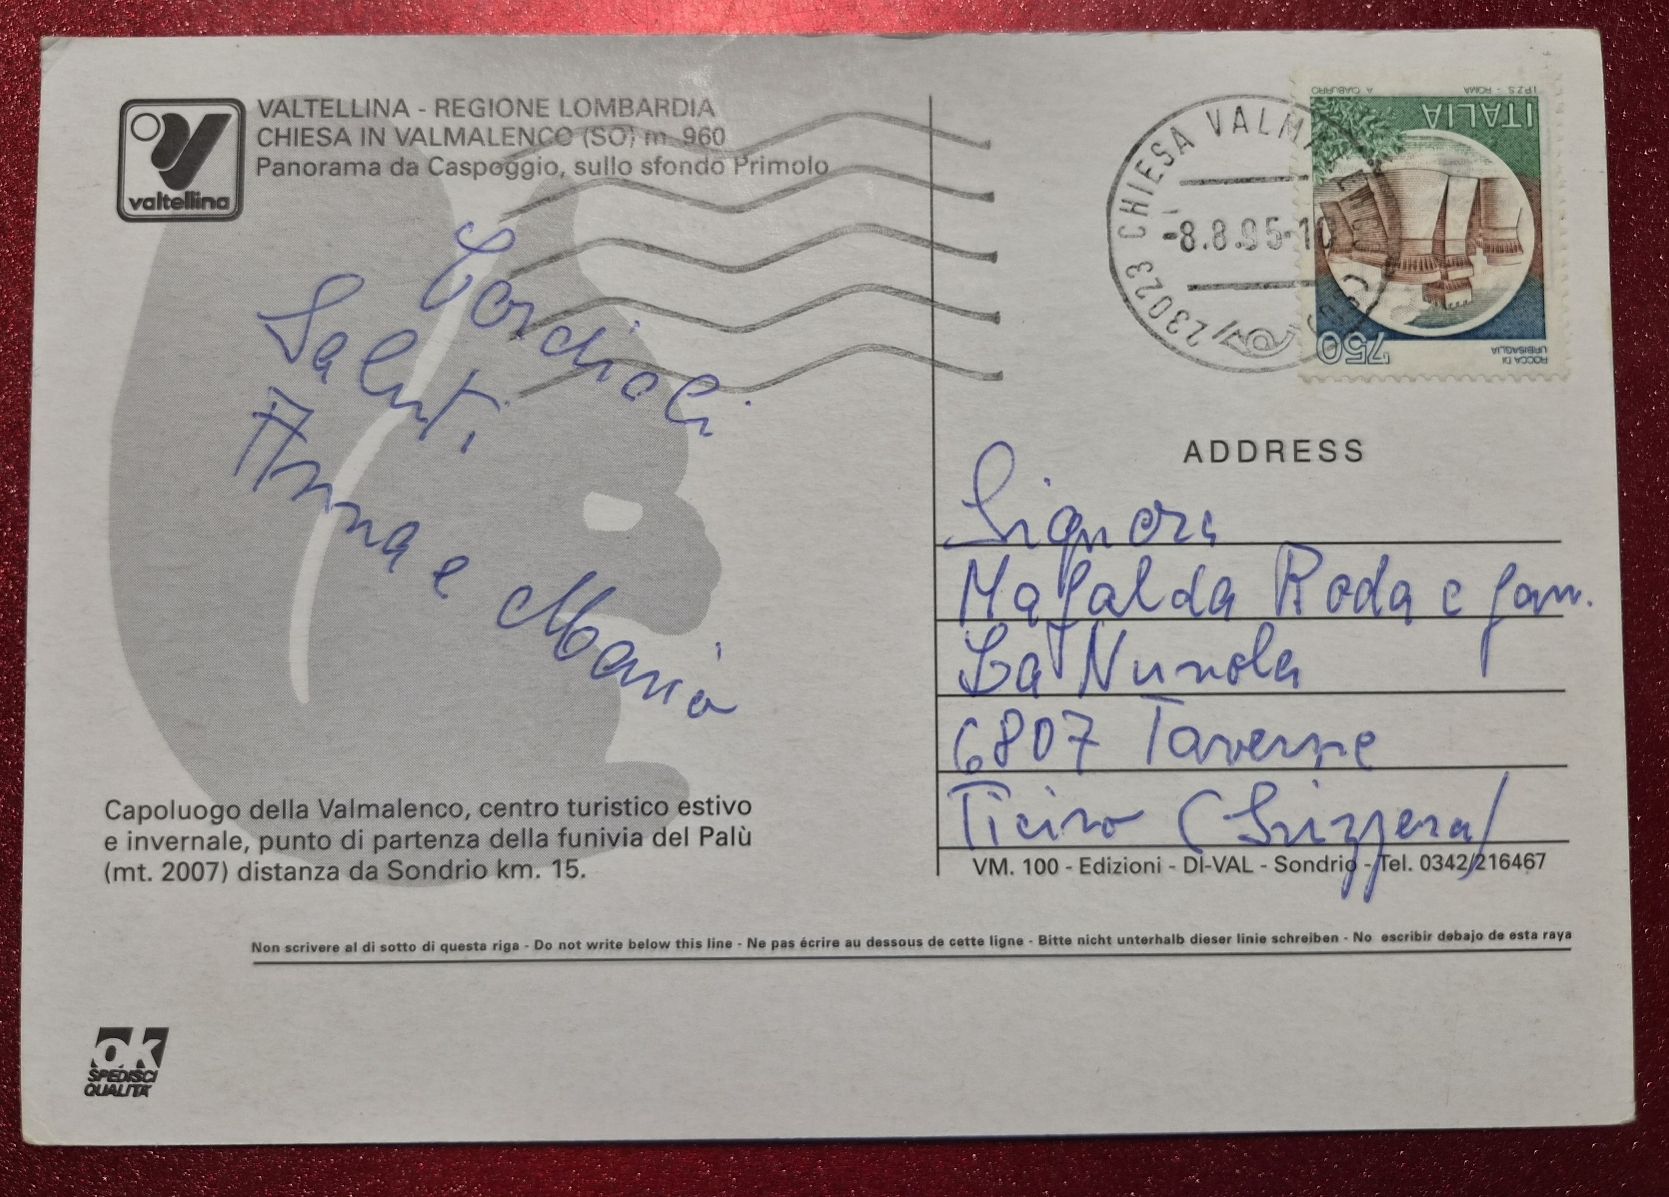 valtellina
VALTELLINA - REGIONE LOMBARDIA
CHIESA IN VALMALENCO (SO) m. 960
Panorama da Caspoggio, sullo sfondo Primolo
Cordiali
Saluti
Anna e Maria
Capoluogo della Valmalenco, centro turistico estivo
e invernale, punto di partenza della funivia del Palù
(mt. 2007) distanza da Sondrio km. 15.
23023 CHIESA VALM
-8.8.95-10
ITALIA
I.P.Z.S. - ROMA
750
ROCCA DI
URBISAGLIA
ADDRESS
Signora
Mafalda Roda e fam.
La Nunola
6807 Taverne
Ticino (Svizzera)
VM. 100 - Edizioni - DI-VAL - Sondrio - Tel. 0342/216467
Non scrivere al di sotto di questa riga - Do not write below this line - Ne pas écrire au dessous de cette ligne - Bitte nicht unterhalb dieser linie schreiben - No escribir debajo de esta raya
ok
SPEDISCI
QUALITA'